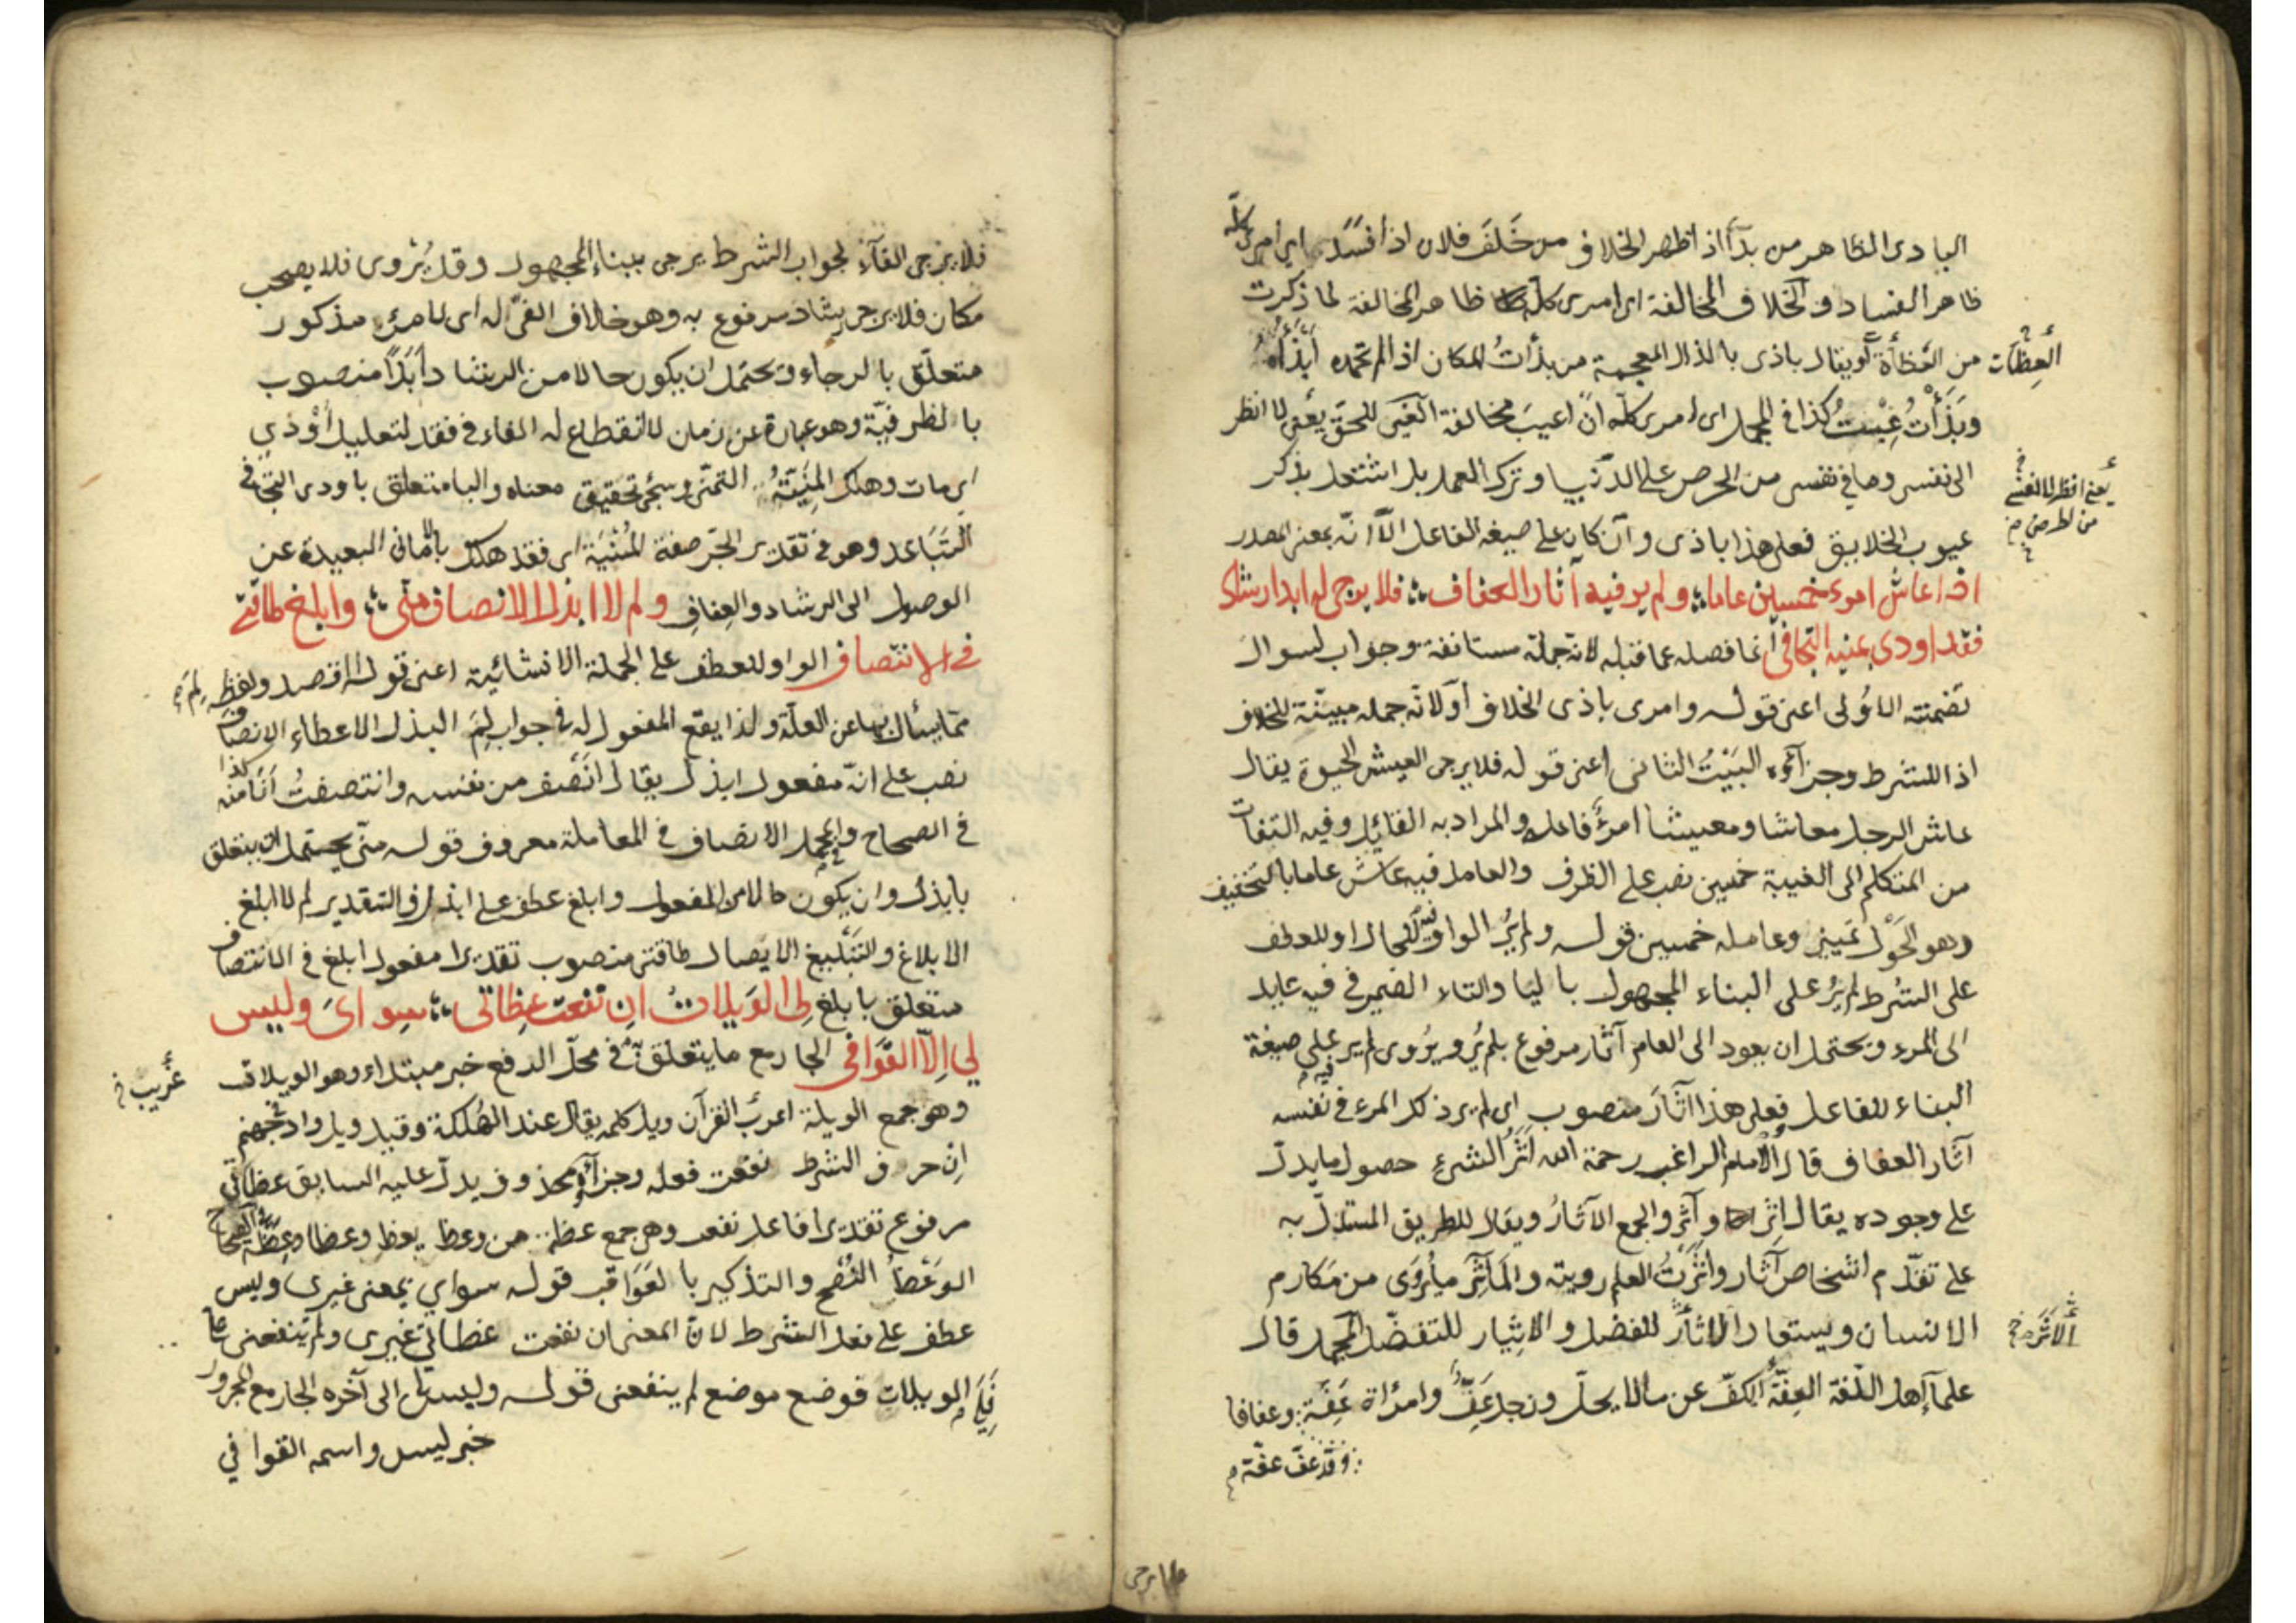 البادى الظاهر من بدأ اذا ظهر الخلاف من خَلَفَ فلان اذا فسَدَ اى امرى كلّه
ظاهر الفساد والخلاف المخالفة اى امرى كله ظاهر المخالفة لما ذكرت
من العظأة او يقال باذى بالذال المعجمة من بذأتُ المكان اذا لم تحمده
العِظَات
وبَذَأْتُ عِبْتُ كذا فى المجمل اى امرى كلّه ان اعيبَ مخالفة الغير للحقّ يعنى لا انظر
الى نفسى وما فى نفسى من الحرص على الدّنيا وترك العمل بل اشتغل بذكر
عيوب الخلايق فعلى هذا باذى وان كان على صيغة الفاعل الّا انّه بمعنى المصدر
اذا عاش امرء خمسين عاما ولم ير فيه آثار العفاف فلا يرجى له ابدا رشاد
فقد اودى بمنيه التجافى انما فصله عما قبله لانه جملة مستانفة وجواب لسوال
تضمنته الاولى اعنى قوله وامرى باذى الخلاف او لانّه جمله مبينّة للخلاف
اذا للشرط وجزآؤه البَيْتُ الثانى اعنى قوله فلا يرجى العيش الحيوة يقال
عاش الرجل معاشا ومعيشا امرؤ فاعله والمراد به القايل وفيه التفات
من المتكلم الى الغيبة خمسين نصب على الظرف والعامل فيه عاش عاما بالتخفيف
وهو الحَوْل تمييز وعامله خمسين قوله ولم يُرَ الواو فيه للحال او للعطف
على الشرط لم يُرَ على البناء المجهول باليا والتاء الضمير فى فيه عايد
الى المرء ويحتمل ان يعود الى العام آثار مرفوع بلم يُرَ ويُرْوى لم ير على صيغة
البناء للفاعل فعلى هذا آثارَ منصوب اى لم ير ذلك المرء فى نفسه
آثار العفاف قال الامام الراغب رحمة الله اَثَرُ الشىءِ حصول ما يدلّ
على وجوده يقال اثر و آثر والجمع الآثارُ ويقال للطريق المستدلّ به
على تقدّم اشخاص آثار واَثَرْتُ العلم رويته والمآثر ما يُرْوَى من مَكارم
الانسان ويستعار الاثار للفضل والايثار للتفضّل المجمل قال
علمآء اهل اللّغة العِفّةُ الكفّ عن مالا يحلّ ورجل عَفٌّ وامرأة عَفّة وعفافا
وقد عفّ عفّة
فلا يرجى
فلا يرجى الفآء لجواب الشرط يرجى ببناء المجهول وقد يُرْوى فلا يصحب
مكان فلا يرجى رشاد مرفوع به وهو خلاف الغىّ له اى لامرئ مذكور
متعلّق بالرجاء ويحتمل ان يكون حالا من الرشاد أبَدًا منصوب
بالظرفيّة وهو عبارة عن زمان لا انقطاع له الفاء فى فقد لتعليل أوْدى
اى مات وهلك المِنْيَةُ التمنّى وسيجئ تحقيق معناه والباء متعلق باودى التجافى
التَبَاعد وهو فى تقدير الجرّ صفة المُنْيَة اى فقد هلك بالامانى البعيدة عن
الوصول الى الرشاد والعِفافِ ولم لا ابذل الانصاف منّى وابلغ طاقتى
فى الانتصاف الواو للعطف على الجملة الانشائية اعنى قوله اقصد ولفظ لِمَ
ممّا يسأل بها عن العلّة ولذا يقع المفعول له فى جواب لِمَ البذل الاعطاء الانصاف
نصب على انّه مفعول ابذل يقال انصَف من نفسه وانتصفتُ اَنَا منه كذا
فى الصحاح والمجمل الانصاف فى المعاملة معروف قوله منّى يحتمل ان يتعلق
بابذل وان يكون حالا من المفعول وابلغ عطف على ابذل والتقدير لم لا ابلغ
الابلاغ والتَبْليغ الايصال طاقتى منصوب تقديرا مفعول ابلغ فى الانتصاف
متعلق بابلغ لى الوَيلاتُ اِن نفعت عِظاتى سِواىَ وليس
لى اِلّا القَوَافى الجار مع ما يتعلق به فى محلّ الرفع خبر مبتداء وهو الويلات
وهو جمع الويلة اعربَ القرآن ويل كلمه يقال عند الهُلكة وقيل ويل واد فى جهنم
اِنْ حرف الشرط نفعت فعله وجزآؤه محذوف يدلّ عليه السابق عظاتى
مرفوع تقديرا فاعل نفعت وهى جمع عظة من وعظ يعظ وعظا وعِظَة
الوَعْظُ النُصْح والتذكير بالعَوَاقب قوله سواي بمعنى غيرى وليس
عطف على نفعت الشرط لانّ المعنى ان نفعت عظاتى غيرى ولم تنفعنى
فلى الويلات فوضع موضع لم ينفعنى قوله وليس لى الى آخره الجار مع المجرور
خبر ليس واسمه القوافي